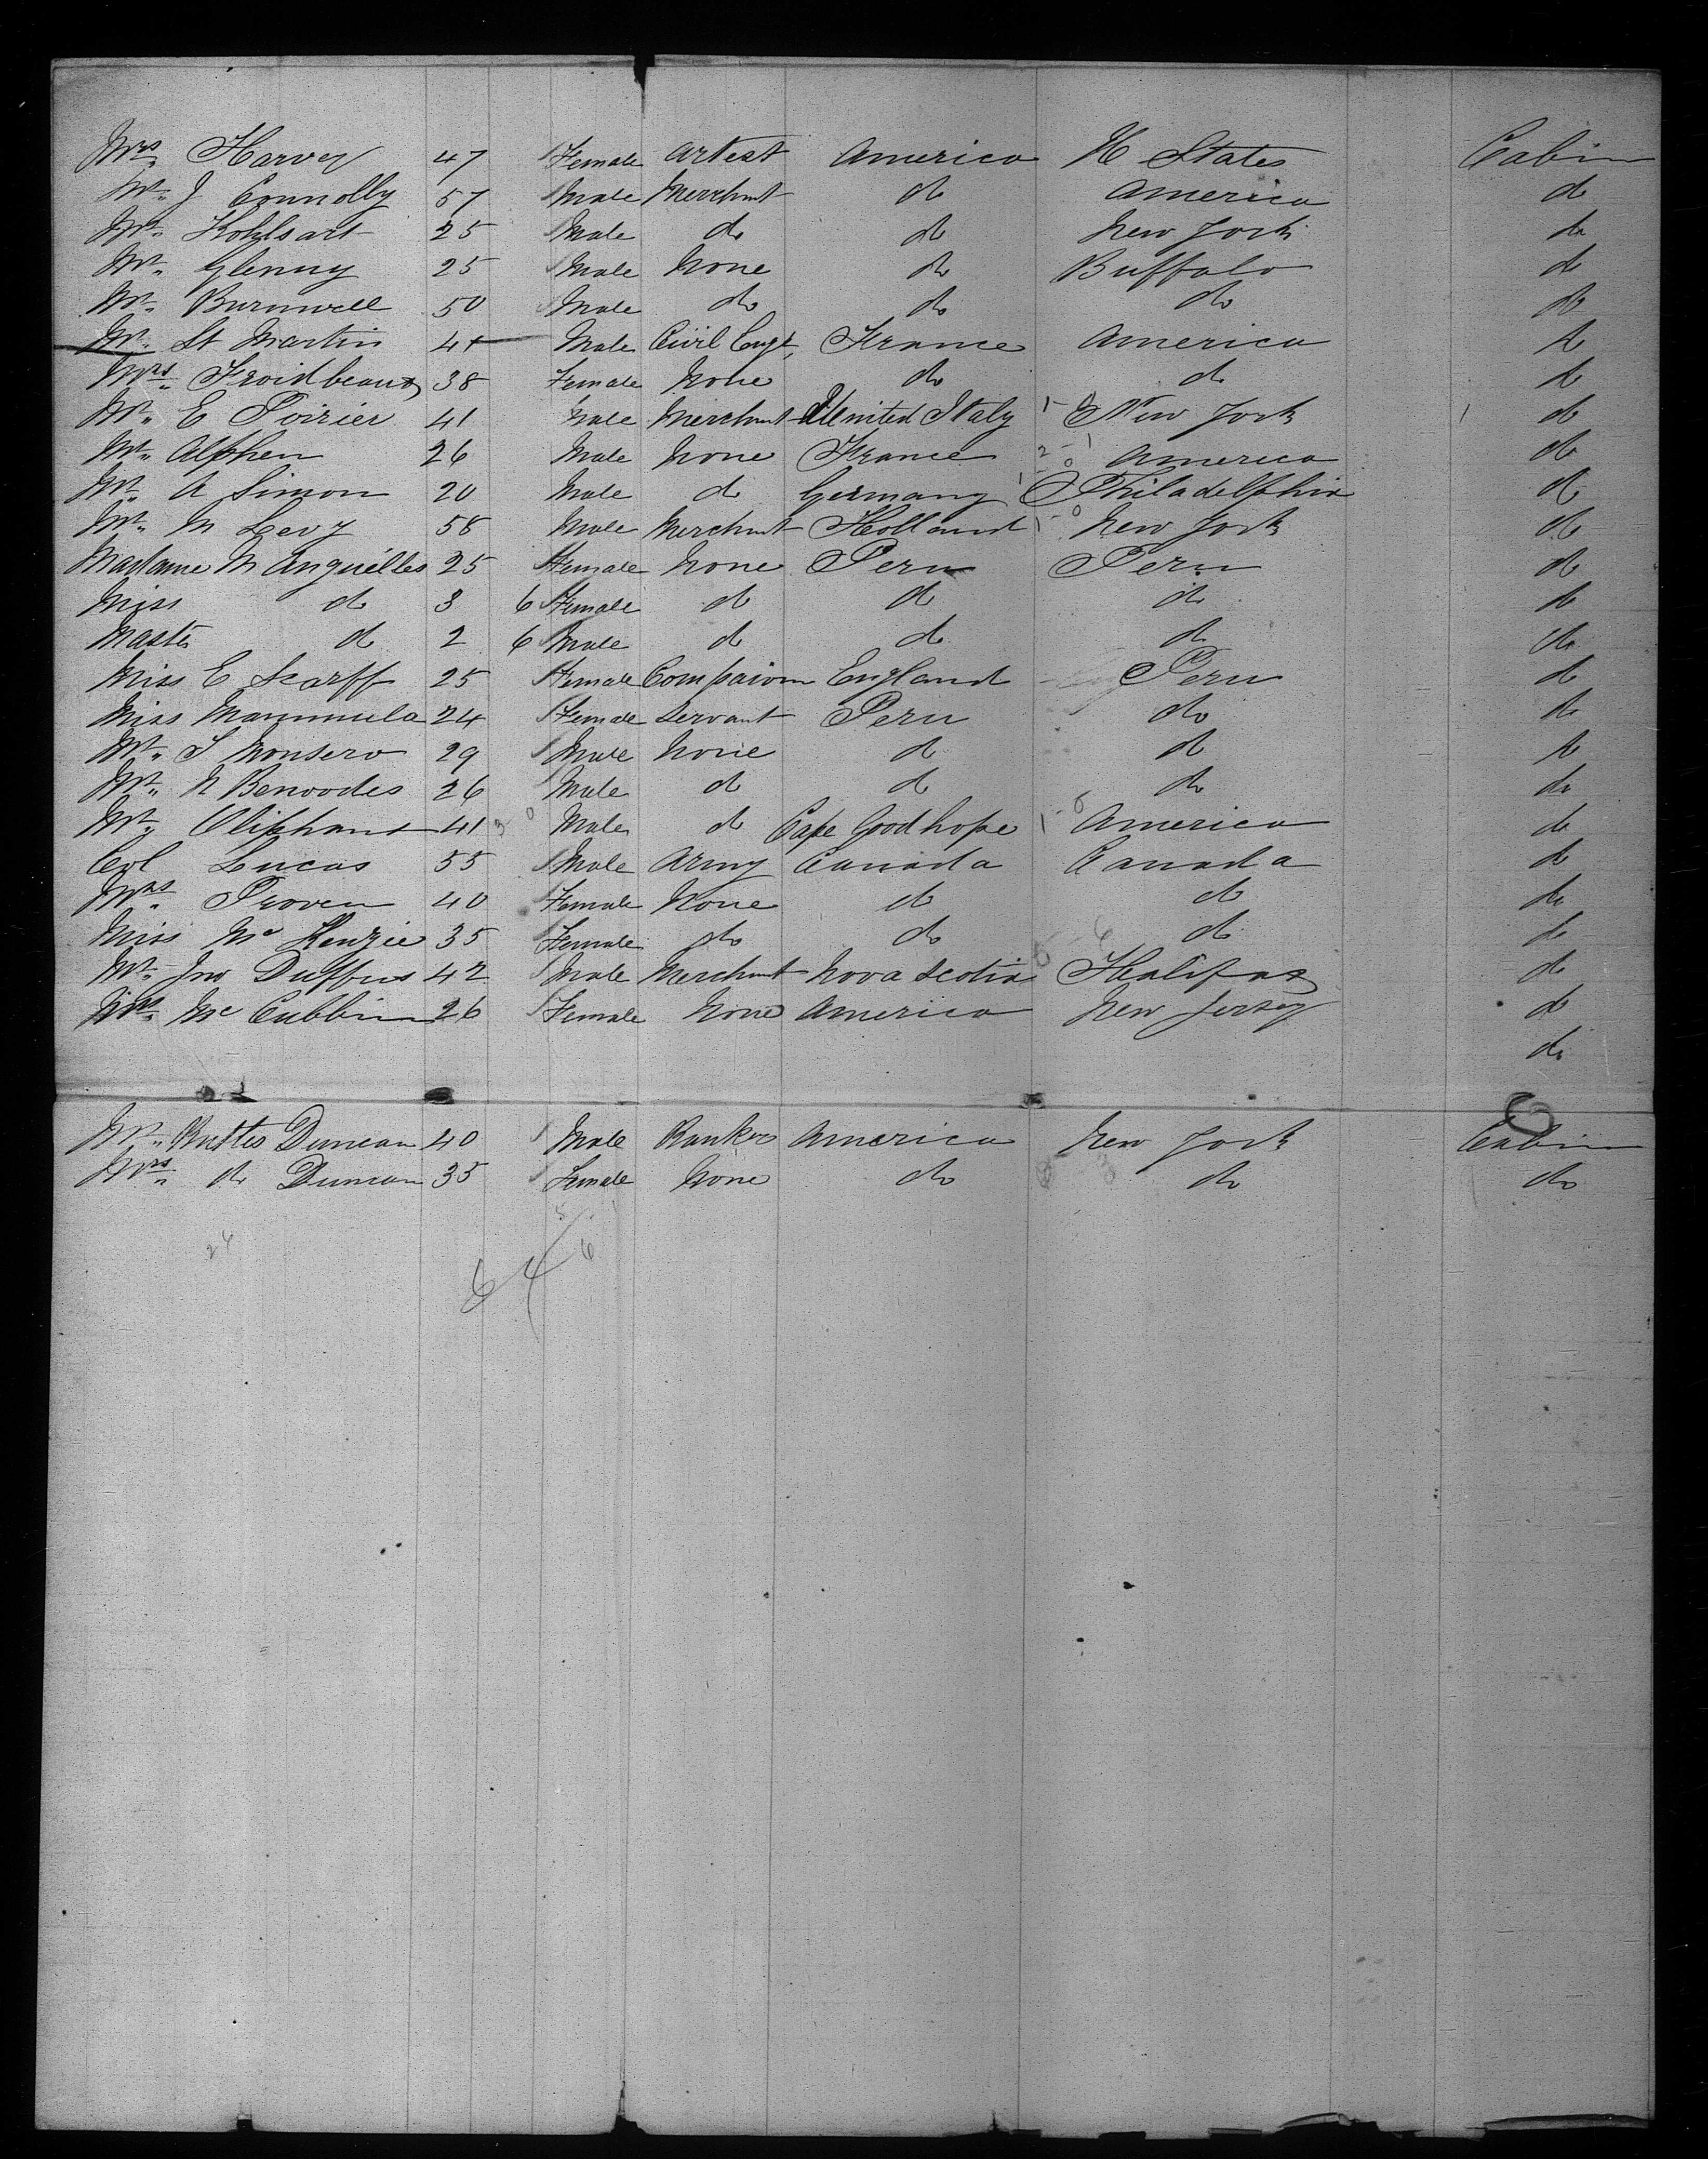 Mrs Harvey 47 Female Artest America U States Cabin
Mr J Connolly 57 Male Merchnt do America do
Mr Kohlsart 25 Male do do New York do
Mr Glenny 25 Male None do Buffalo do
Mr Burnwell 50 Male do do do do
Mr St Martin 41 Male Civil Engr France America do
Mrs Froidbeaux 38 Female None do do do
Mr E Poirier 41 Male Merchnt United Italy New York do
Mr Alphen 26 Male None France America do
Mr A Simon 20 Male do Germany Philadelphia do
Mr M Levy 58 Male Merchnt Holland New York do
Madame M Anguilles 25 Female None Peru Peru do
Miss do 3 6 Female do do do do
Master do 2 6 Male do do do do
Miss E Scarff 25 Female Compaion England Peru do
Miss Manmuela 24 Female Servant Peru do do
Mr S Monsero 29 Male None do do do
Mr N Benvodes 26 Male do do do do
Mr Oliphant 41 Male do Cape Good hope America do
Col Lucas 55 Male Army Canada Canada do
Mrs Proven 40 Female None do do do
Miss Mc Kenzie 35 Female do do do do
Mr Jno Duffus 42 Male Merchnt Nova Scotia Halifax do
Mrs Mc Cubbin 26 Female None America New Jersey do
do
Mr Butler Duncan 40 Male Banker America New York Cabin
Mrs do Duncan 35 Female None do do do
24
64